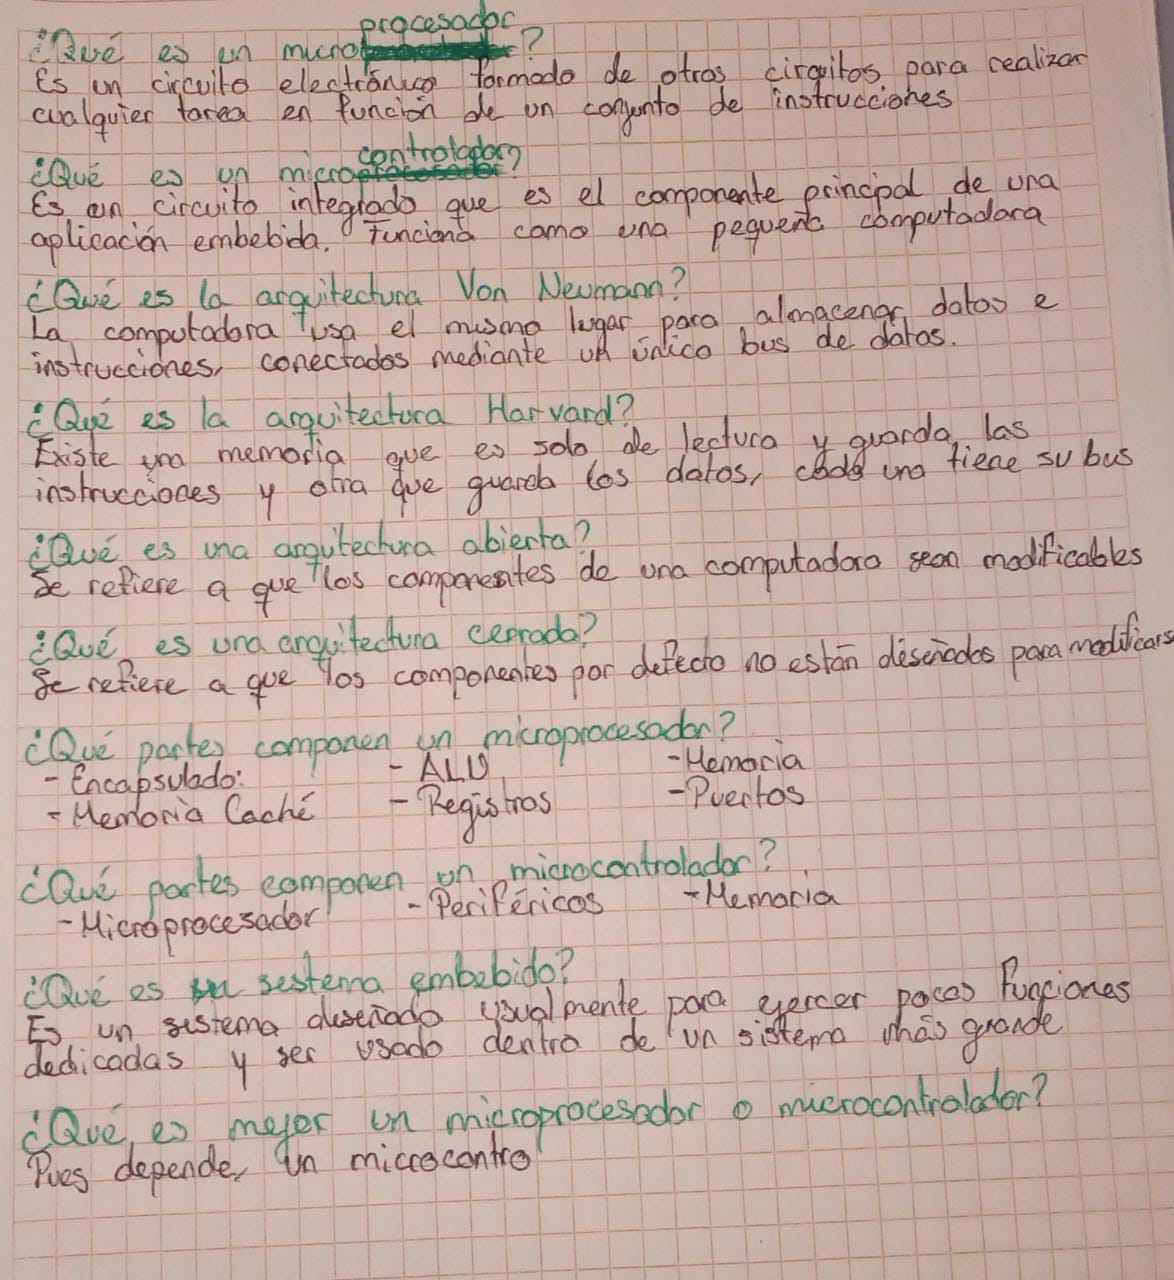 ¿Qué es un microprocesador?
Es un circuito electrónico formado de otros circuitos para realizar
cualquier tarea en función de un conjunto de instrucciones
¿Qué es un microcontrolador?
Es un circuito integrado que es el componente principal de una
aplicación embebida. Funciona como una pequeña computadora
¿Qué es la arquitectura Von Neumann?
La computadora usa el mismo lugar para almacenar datos e
instrucciones, conectados mediante un único bus de datos.
¿Qué es la arquitectura Harvard?
Existe una memoria que es solo de lectura y guarda las
instrucciones y otra que guarda los datos, cada una tiene su bus
¿Qué es una arquitectura abierta?
Se refiere a que los componentes de una computadora sean modificables
¿Qué es una arquitectura cerrada?
Se refiere a que los componentes por defecto no están diseñados para modificars
¿Qué partes componen un microprocesador?
- Encapsulado: - ALU - Memoria
- Memoria Caché - Registros - Puertos
¿Qué partes componen un microcontrolador?
- Microprocesador - Periféricos - Memoria
¿Qué es un sestema embebido?
Es un sistema diseñado usualmente para ejercer pocas funciones
dedicadas y ser usado dentro de un sistema más grande
¿Qué es mejor un microprocesador o microcontrolador?
Pues depende, un microcontro